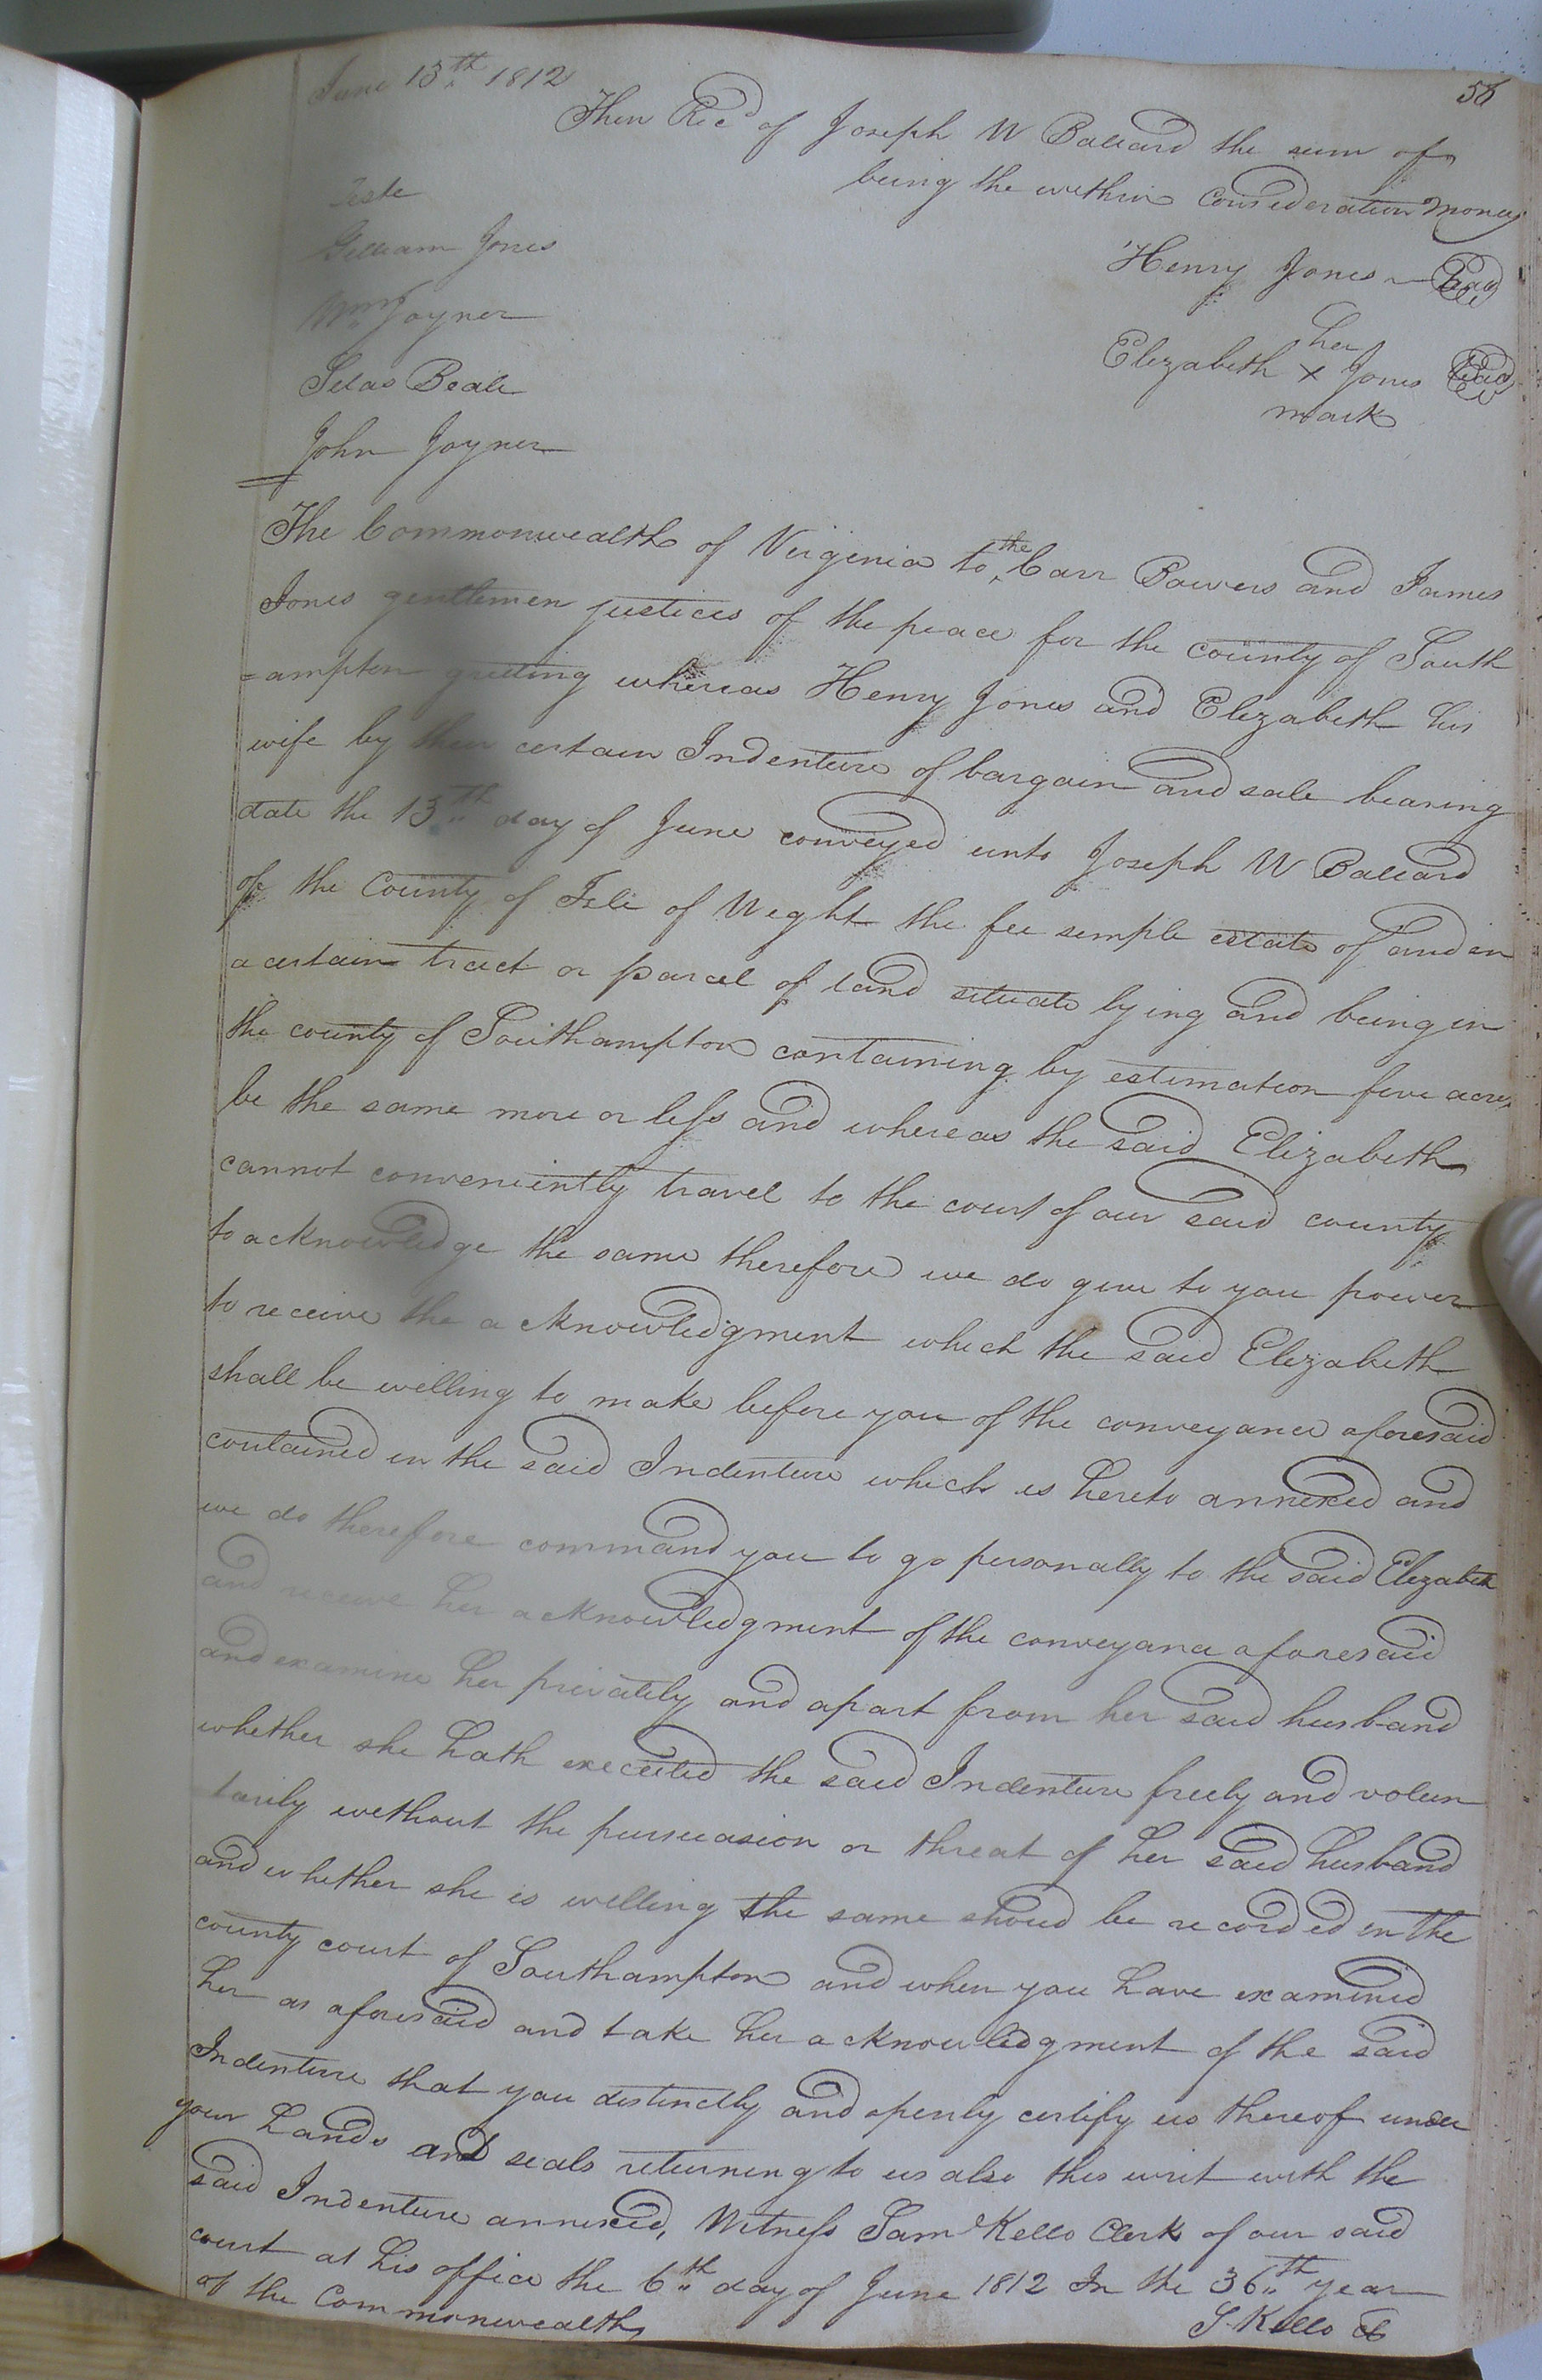 58
June 13th 1812
Then Recd of Joseph W Ballard the sum of
being the within Consideration money
Teste
William Jones
Wm Joyner
Silas Beale
John Joyner
Henry Jones Seal
her
Elizabeth x Jones Seal
mark
The Commonwealth of Virginia to the Carr Bowers and James
Jones gentlemen justices of the peace for the county of South
=ampton greeting whereas Henry Jones and Elizabeth his
wife by their certain Indenture of bargain and sale bearing
date the 13th day of June conveyed unto Joseph W Ballard
of the County of Isle of Wight the fee simple estate of and in
a certain tract or parcel of land situate lying and being in
the county of Southampton containing by estimation five acres
be the same more or less and whereas the said Elizabeth
cannot conveniently travel to the court of our said county
to acknowledge the same therefore we do give to you power
to receive the acknowledgment which the said Elizabeth
shall be willing to make before you of the conveyance aforesaid
contained in the said Indenture which is hereto annexed and
we do therefore command you to go personally to the said Elizabeth
and receive her acknowledgment of the conveyance aforesaid
and examine her privately and apart from her said husband
whether she hath executed the said Indenture freely and volun
tarily without the persuasion or threat of her said husband
and whether she is willing the same shoud be recorded in the
county court of Southampton and when you have examined
her as aforesaid and take her acknowledgment of the said
Indenture that you distinctly and openly certify us thereof under
your hands and seals returning to us also this writ with the
said Indenture annexed, Witness Saml Kello Clerk of our said
court at his office the 6th day of June 1812 In the 36th year
of the Commonwealth
S Kello Cl